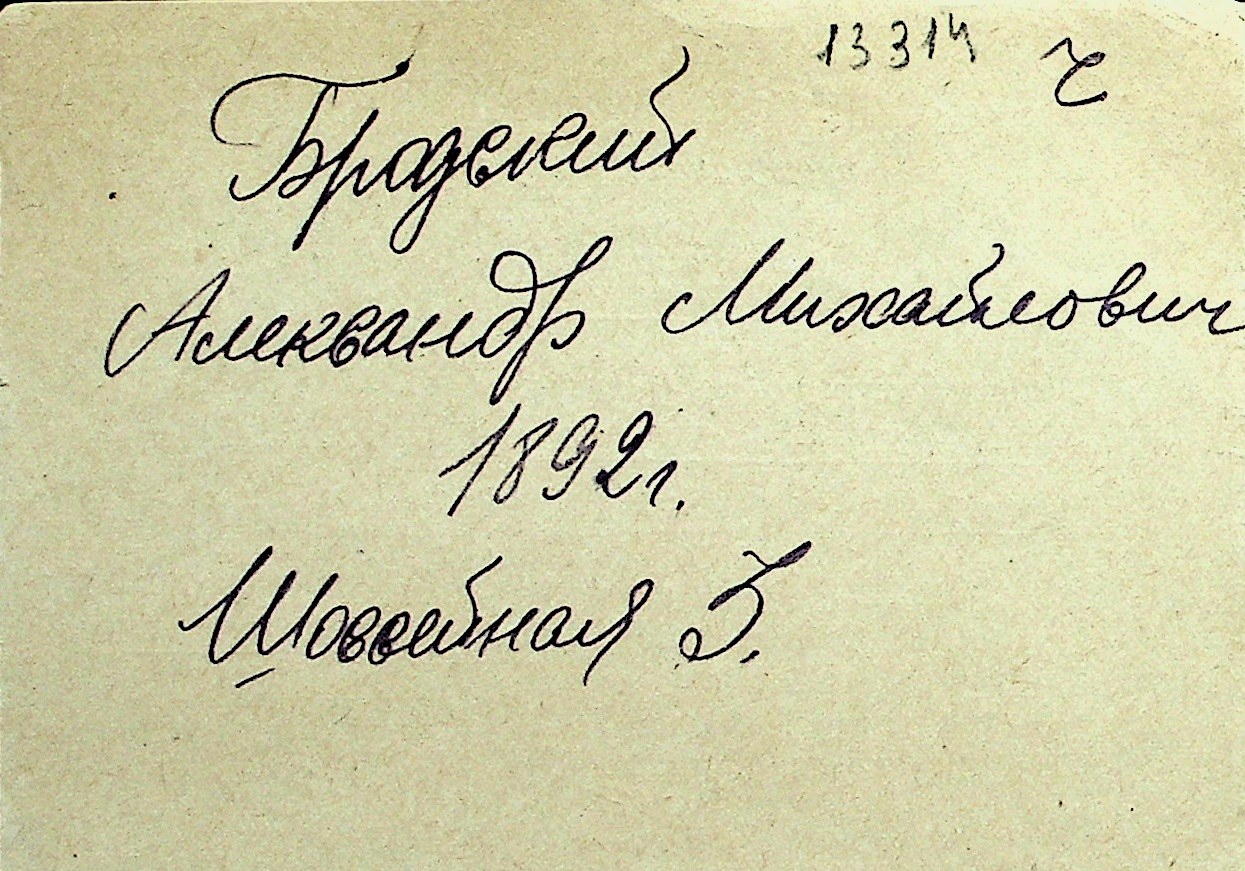 13314 ч
Бродский
Александр Михайлович
1892г.
Шоссейная 5.